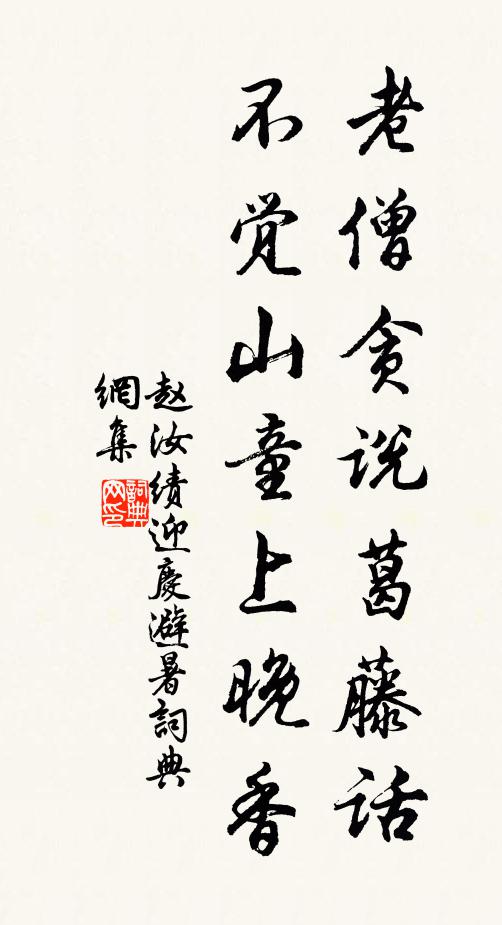 老僧贪说葛藤话
不觉山童上晚香
赵汝绩迎慶避暑詞典
網集
詞典
网印